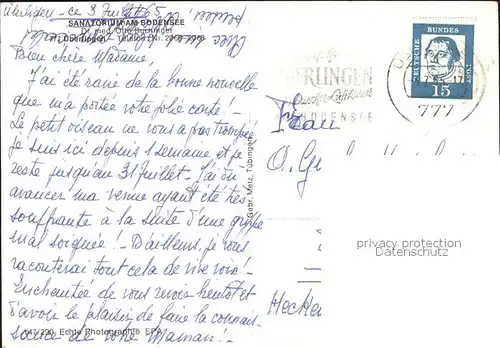 Überlingen - ce 3 Juillet 65
SANATORIUM AM BODENSEE
Dr. med. Otto Buchinger
Überlingen - Telefon
Bien chère Madame,
J'ai été ravie de la bonne nouvelle
que m'a portée votre jolie carte! -
Le petit oiseau ne vous a pas trompée,
je suis ici depuis 1 semaine et je
reste jusqu'au 31 Juillet - J'ai dû
avancer ma venue ayant été très
souffrante à la suite d'une grippe
mal soignée! - D'ailleurs je vous
raconterai tout cela de vive voix! -
Enchantée de vous revoir bientôt et
d'avoir le plaisir de faire la connais-
sance de votre Maman! -
Echte Photographie
Gebr. Metz, Tübingen
ÜBERLINGEN
BODENSEE
DEUTSCHE BUNDESPOST
15
777
Frau
O.
privacy protection
Datenschutz